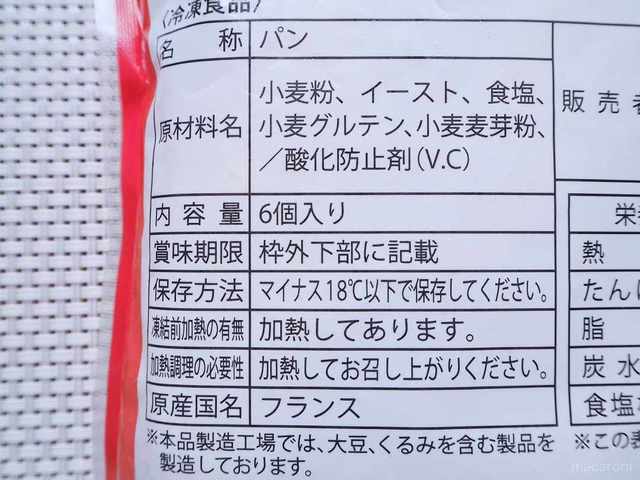 〈冷凍食品〉
名 称 パン
原材料名 小麦粉、イースト、食塩、
小麦グルテン、小麦麦芽粉、
／酸化防止剤(V.C)
内 容 量 6個入り
賞味期限 枠外下部に記載
保存方法 マイナス18℃以下で保存してください。
凍結前加熱の有無 加熱してあります。
加熱調理の必要性 加熱してお召し上がりください。
原産国名 フランス
※本品製造工場では、大豆、くるみを含む製品を
製造しております。
販 売
栄
熱
たん
脂
炭 水
食塩
※この
macaroni